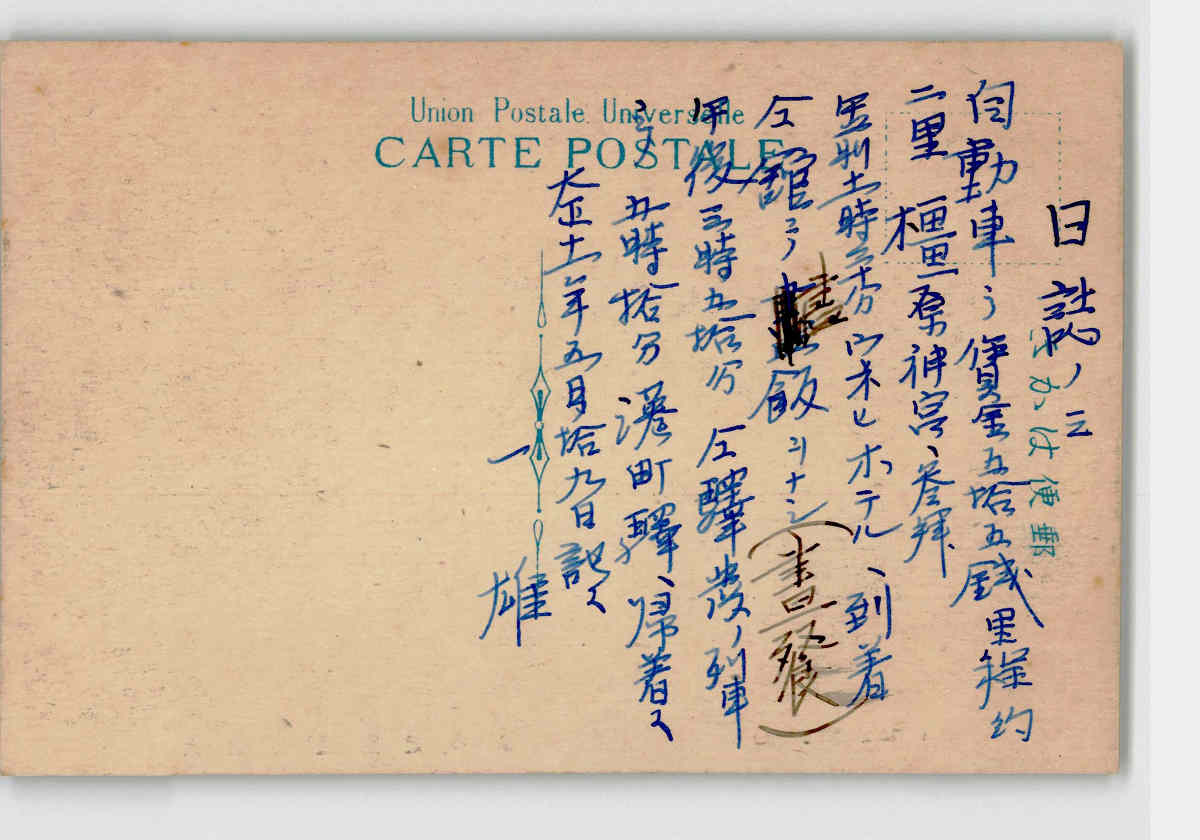 Union Postale Universelle
CARTE POSTALE
郵便はかき
日誌ノ三
自動車う賃金五拾五銭里程約
二里 橿原神宮、参拝、
十一時三十分 ホテル、到着
仝館ニテ 飯ヲナシ
(晝餐)
午後三時五拾分 仝驛発ノ列車
ニテ
五時拾分 湊町驛、帰着ス
大正十一年五月拾九日 記ス
一雄